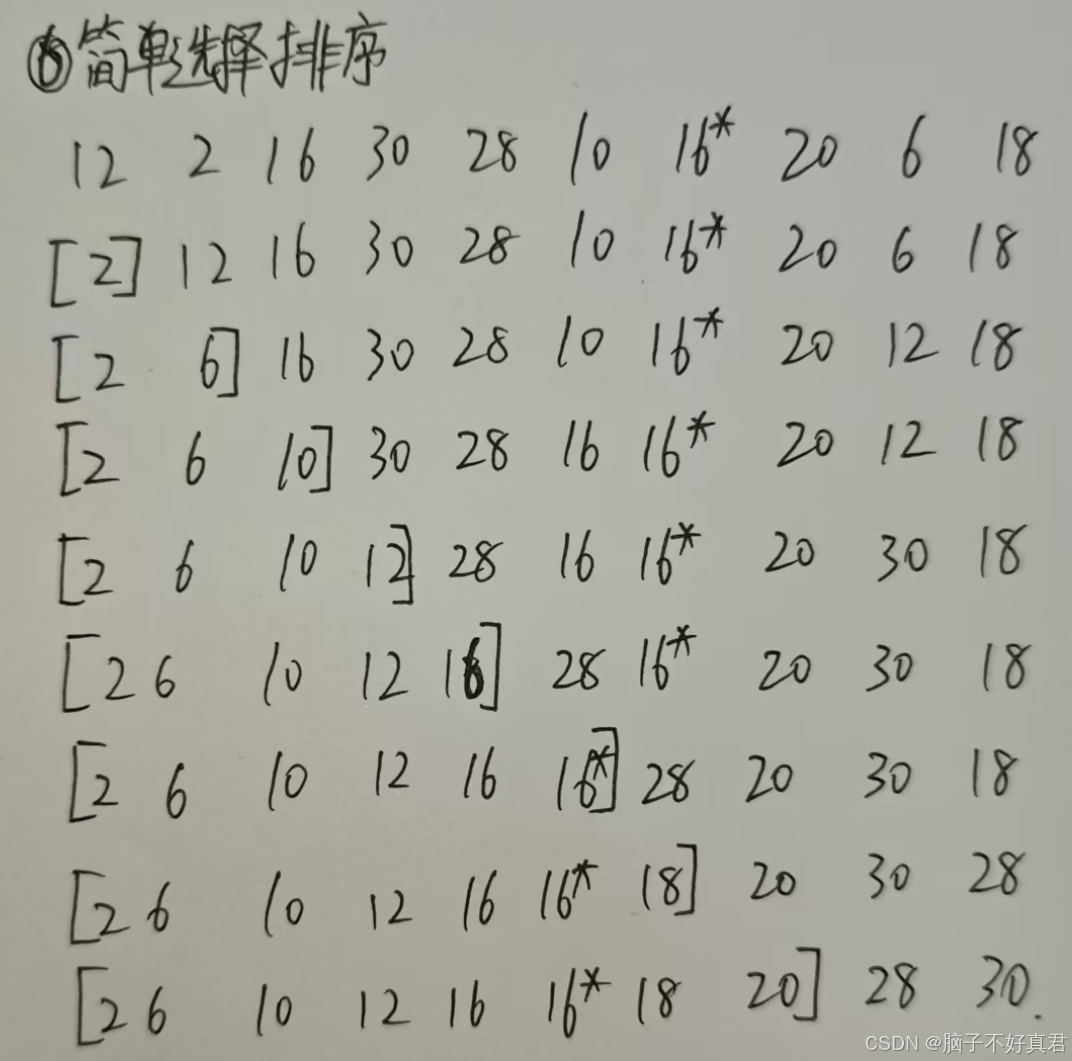 ⑥简单选择排序
12 2 16 30 28 10 16* 20 6 18
[2] 12 16 30 28 10 16* 20 6 18
[2 6] 16 30 28 10 16* 20 12 18
[2 6 10] 30 28 16 16* 20 12 18
[2 6 10 12] 28 16 16* 20 30 18
[2 6 10 12 16] 28 16* 20 30 18
[2 6 10 12 16 16*] 28 20 30 18
[2 6 10 12 16 16* 18] 20 30 28
[2 6 10 12 16 16* 18 20] 28 30.
CSDN @脑子不好真君